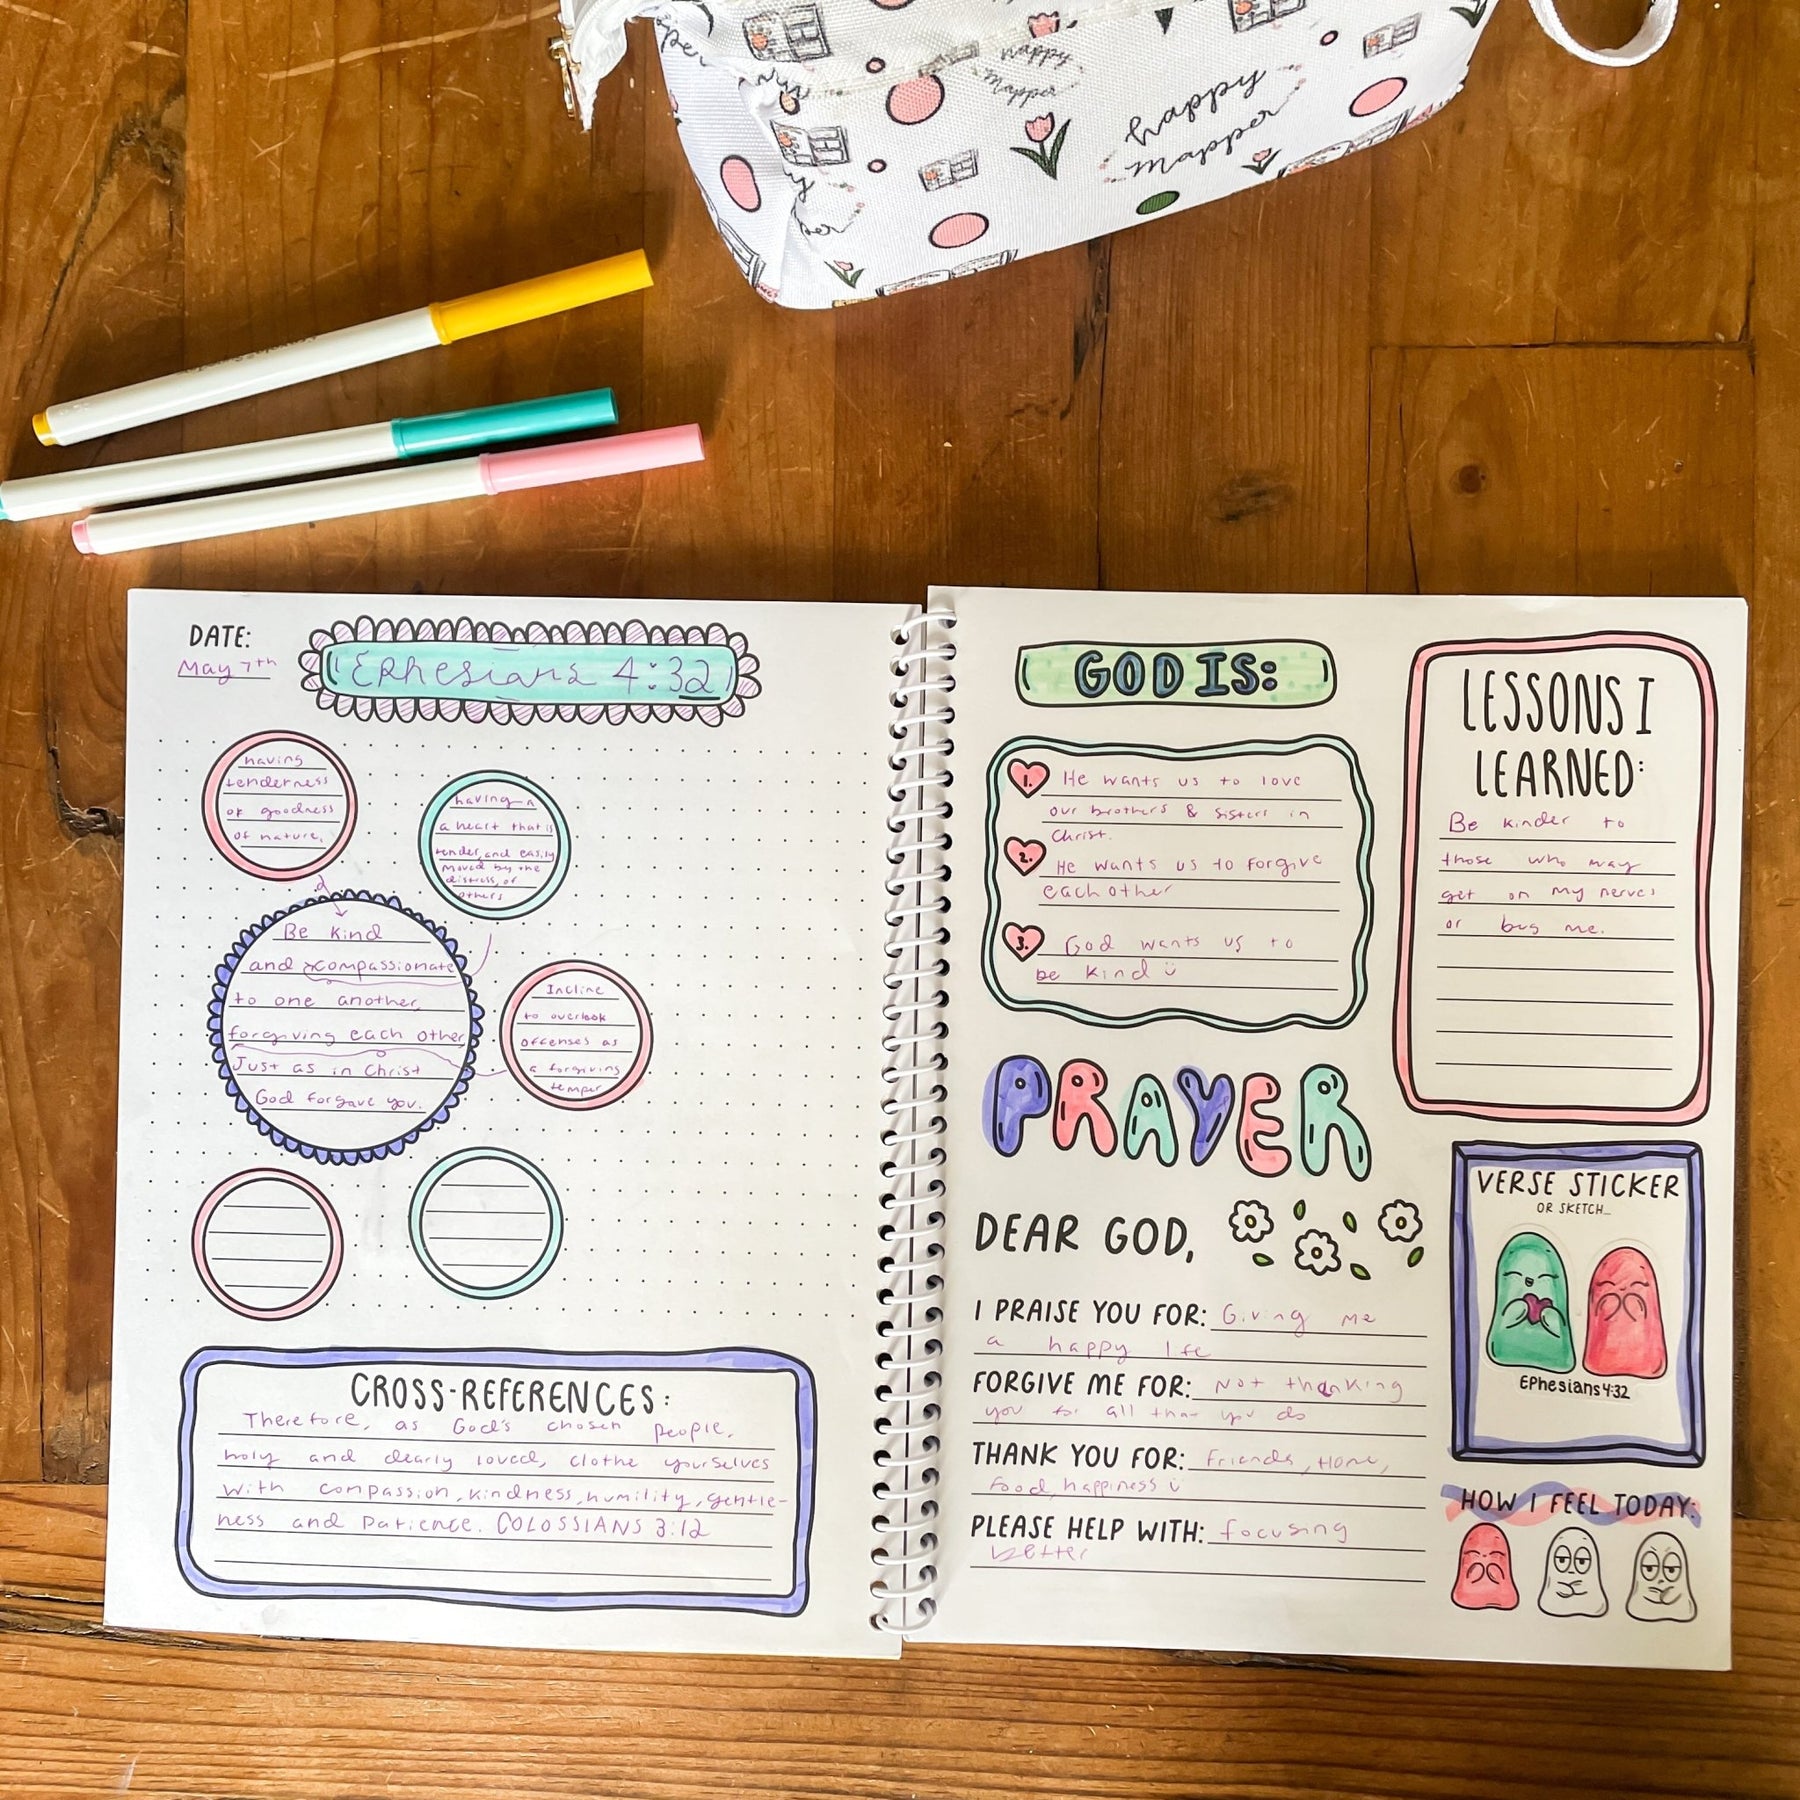 happy
Mapper
happy
Mapper
DATE:
May 7th
Ephesians 4:32
having
tenderness
of goodness
of nature.
having a
a heart that is
tender, and easily
moved by the
distress, of
others
Be kind
and compassionate
to one another,
forgiving each other,
Just as in Christ
God forgave you.
Incline
to overlook
offenses as
a forgiving
temper
CROSS-REFERENCES:
Therefore, as God's chosen people,
holy and dearly loved, clothe yourselves
with compassion, kindness, humility, gentle-
ness and patience. COLOSSIANS 3:12
GOD IS:
1. He wants us to love
our brothers & sisters in
Christ.
2. He wants us to forgive
each other
3. God wants us to
be kind ü
PRAYER
DEAR GOD,
I PRAISE YOU FOR: Giving me
a happy life
FORGIVE ME FOR: Not thanking
you for all that you do
THANK YOU FOR: Friends, Home,
food, happiness ü
PLEASE HELP WITH: focusing
better
LESSONS I
LEARNED:
Be kinder to
those who may
get on my nerves
or bug me.
VERSE STICKER
OR SKETCH...
EPhesians 4:32
HOW I FEEL TODAY: